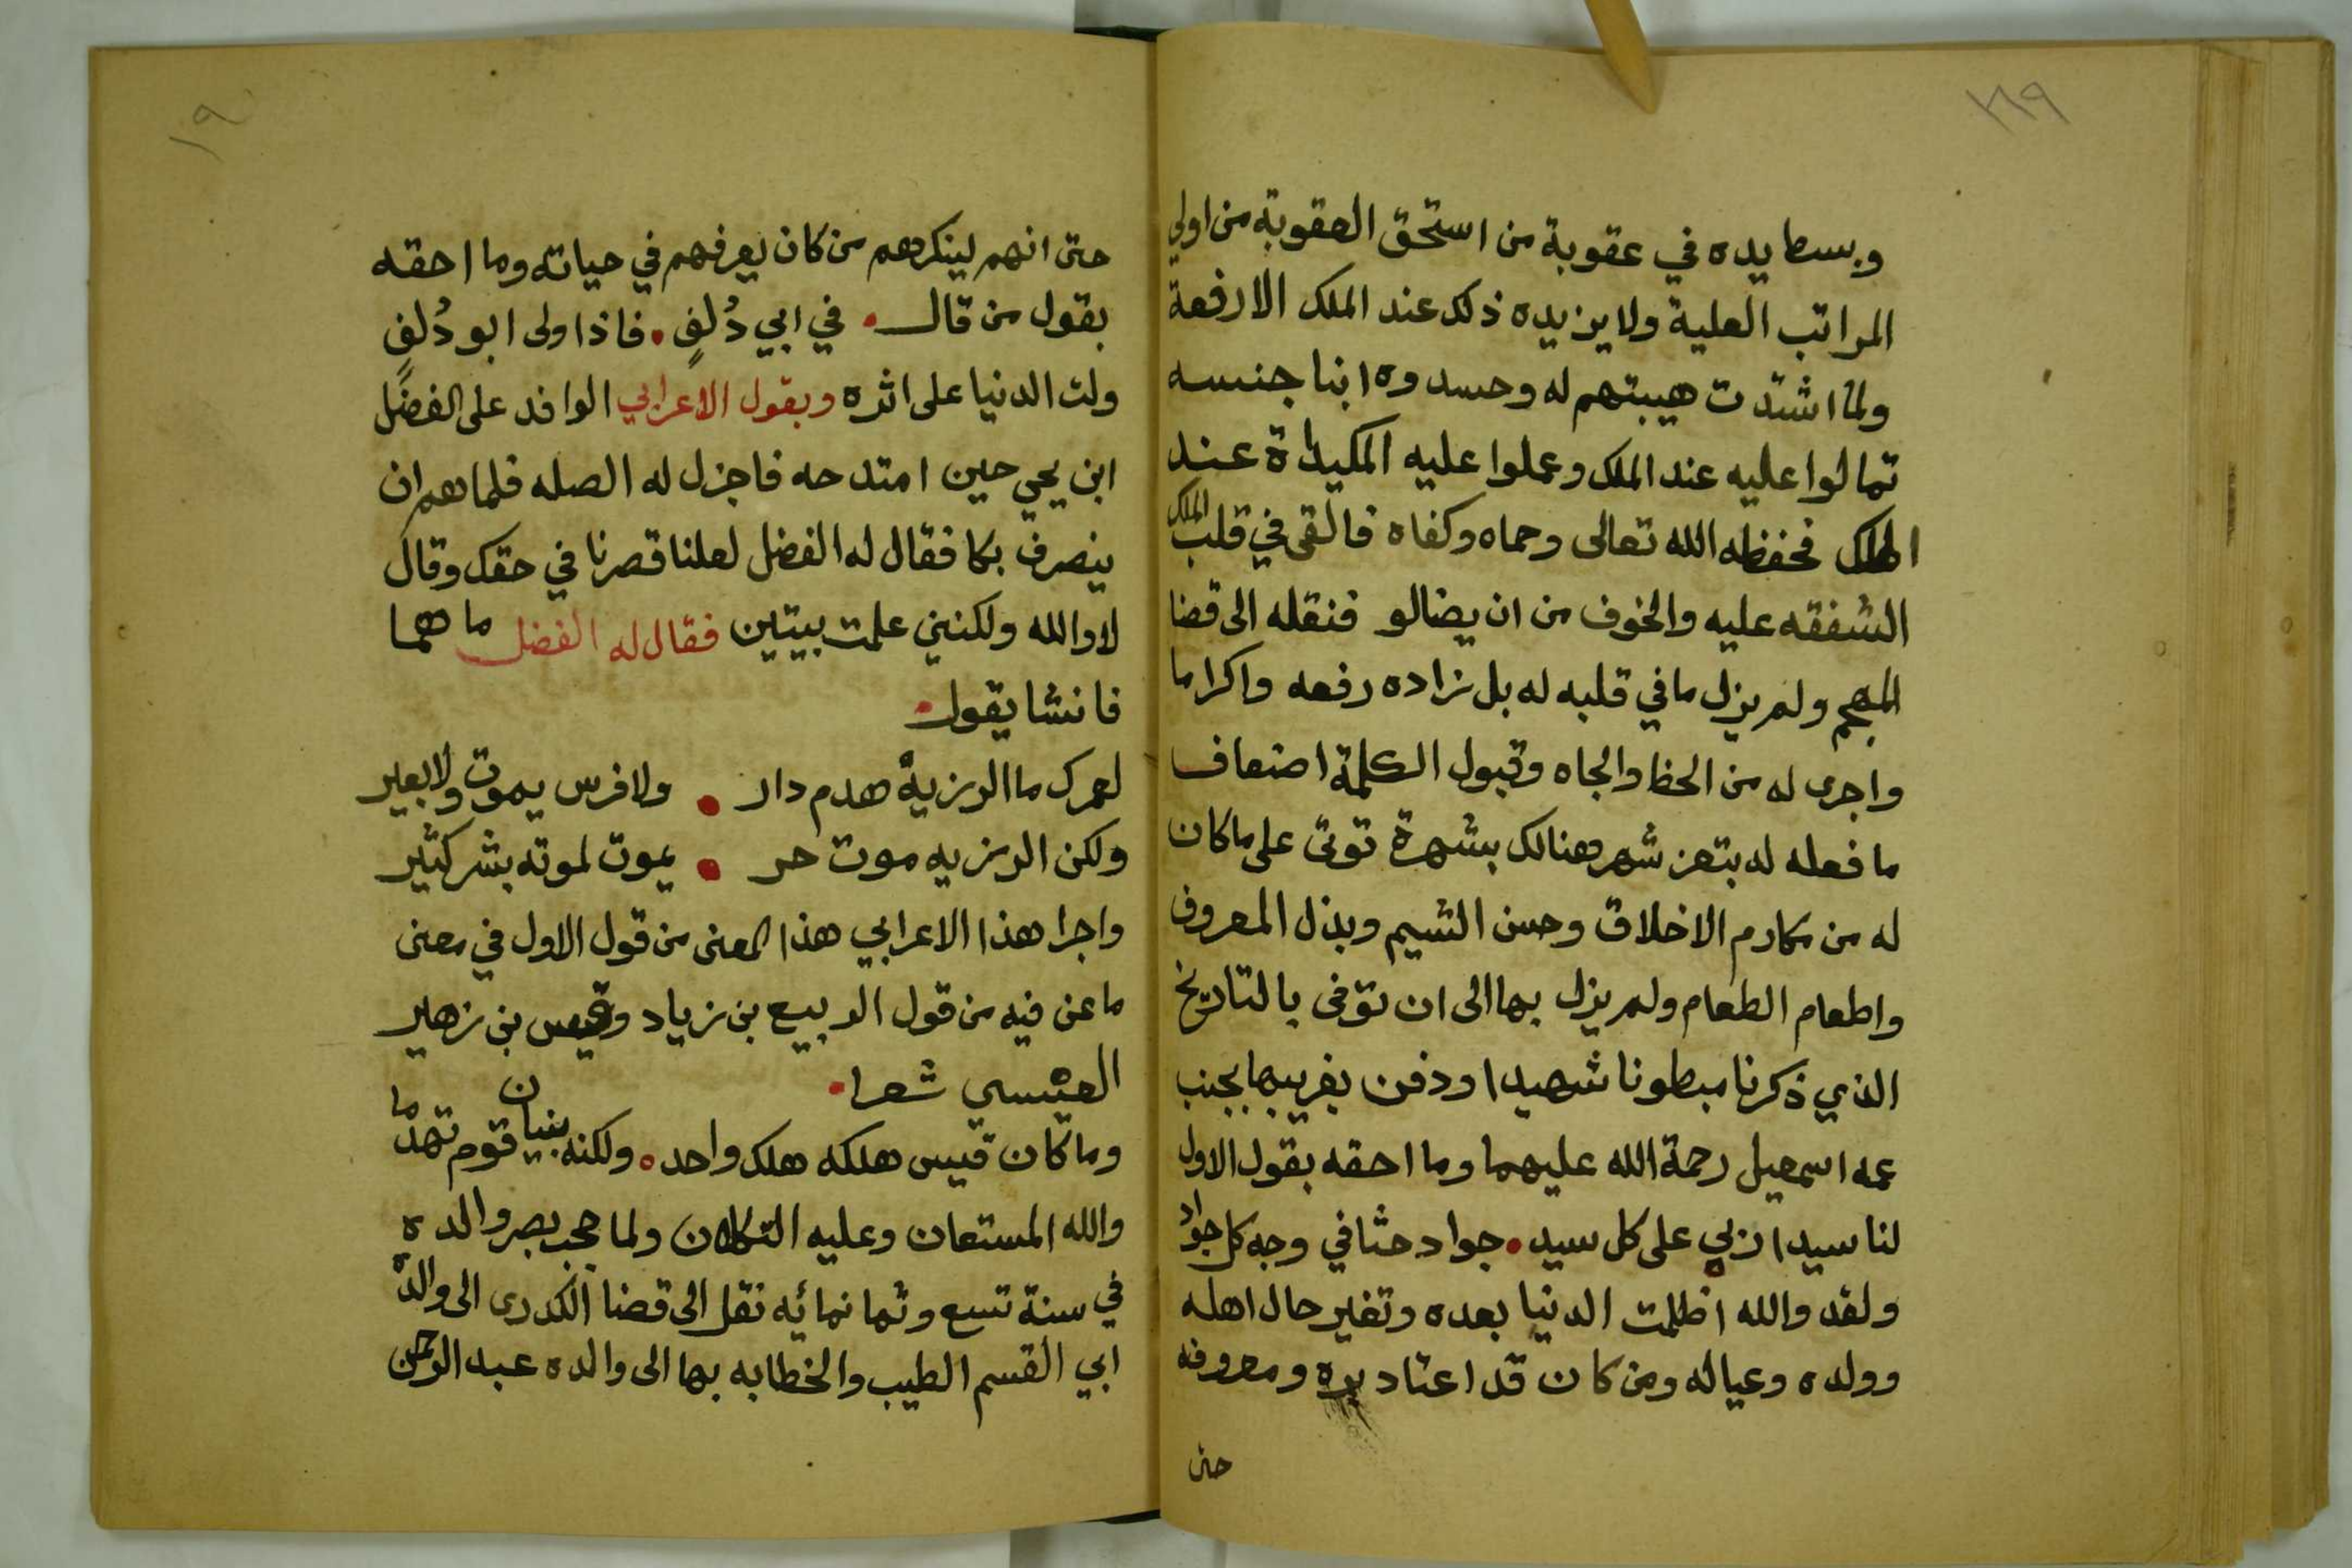 ١٨٩
وبسط يده في عقوبة من استحق العقوبة من اولي
المراتب العلية ولا يزيده ذلك عند الملك الا رفعة
ولما اشتدت هيبتهم له وحسدوه ابنا جنسه
تمالوا عليه عند الملك وعملوا عليه المكيدة عند
الملك فحفظه الله تعالى وحماه وكفاه فالقى في قلب الملك
الشفقه عليه والخوف من ان يضالو فنقله الى قضا
المهجم ولم يزل ما في قلبه له بل زاده رفعه واكراما
واجرى له من الحظ والجاه وقبول الكلمة اضعاف
ما فعله له بتعز شهر هنالك بشهرة توتى على ما كان
له من مكارم الاخلاق وحسن الشيم وبذل المعروف
واطعام الطعام ولم يزل بها الى ان توفى بالتاريخ
الذي ذكرنا مبطونا شهيدا ودفن بغربيها بجنب
عمه اسمعيل رحمة الله عليهما وما احقه بقول الاول
لنا سيد اربي على كل سيد • جواد حثا في وجه كل جواد
ولقد والله اظلمت الدنيا بعده وتغير حال اهله
وولده وعياله ومن كان قد اعتاد بره ومعروفه
حتى
١٩٠
حتى انهم لينكرهم من كان يعرفهم في حياته وما احقه
بقول من قال • في ابي دُلفٍ • فاذا ولى ابو دُلفٍ
ولت الدنيا على اثره وبقول الاعرابي الوافد على الفضل
ابن يحي حين امتدحه فاجزل له الصله فلما هم ان
ينصرف بكا فقال له الفضل لعلنا قصرنا في حقك وقال
لا والله ولكنني علمت بيتين فقال له الفضل ما هما
فانشا يقول •
لعمرك ما الرزية هدم دار • ولا فرس يموت ولا بعير
ولكن الرزيه موت حر • يموت لموته بشر كثير
واجرا هذا الاعرابي هذا المعنى من قول الاول في معنى
ما عن فيه من قول الربيع بن زياد وقيس بن زهير
العبسي شعرا •
وما كان قيس هلكه هلك واحد ه ولكنه بنيان قوم تهدما
والله المستعان وعليه التكلان ولما حجب بصر والده
في سنة تسع وثمانمائه نقل الى قضا الكدرى الى والده
ابي القسم الطيب والخطابه بها الى والده عبد الرحمن